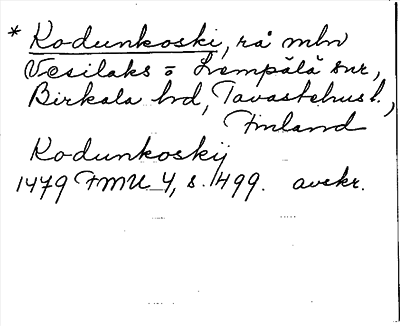 * Kodunkoski, rå mbn
Vesilaks = Lempälä snr,
Birkala hd, Tavastehus l.,
Finland
Kodunkoskij
1479 FMU 4, s. 499. avskr.